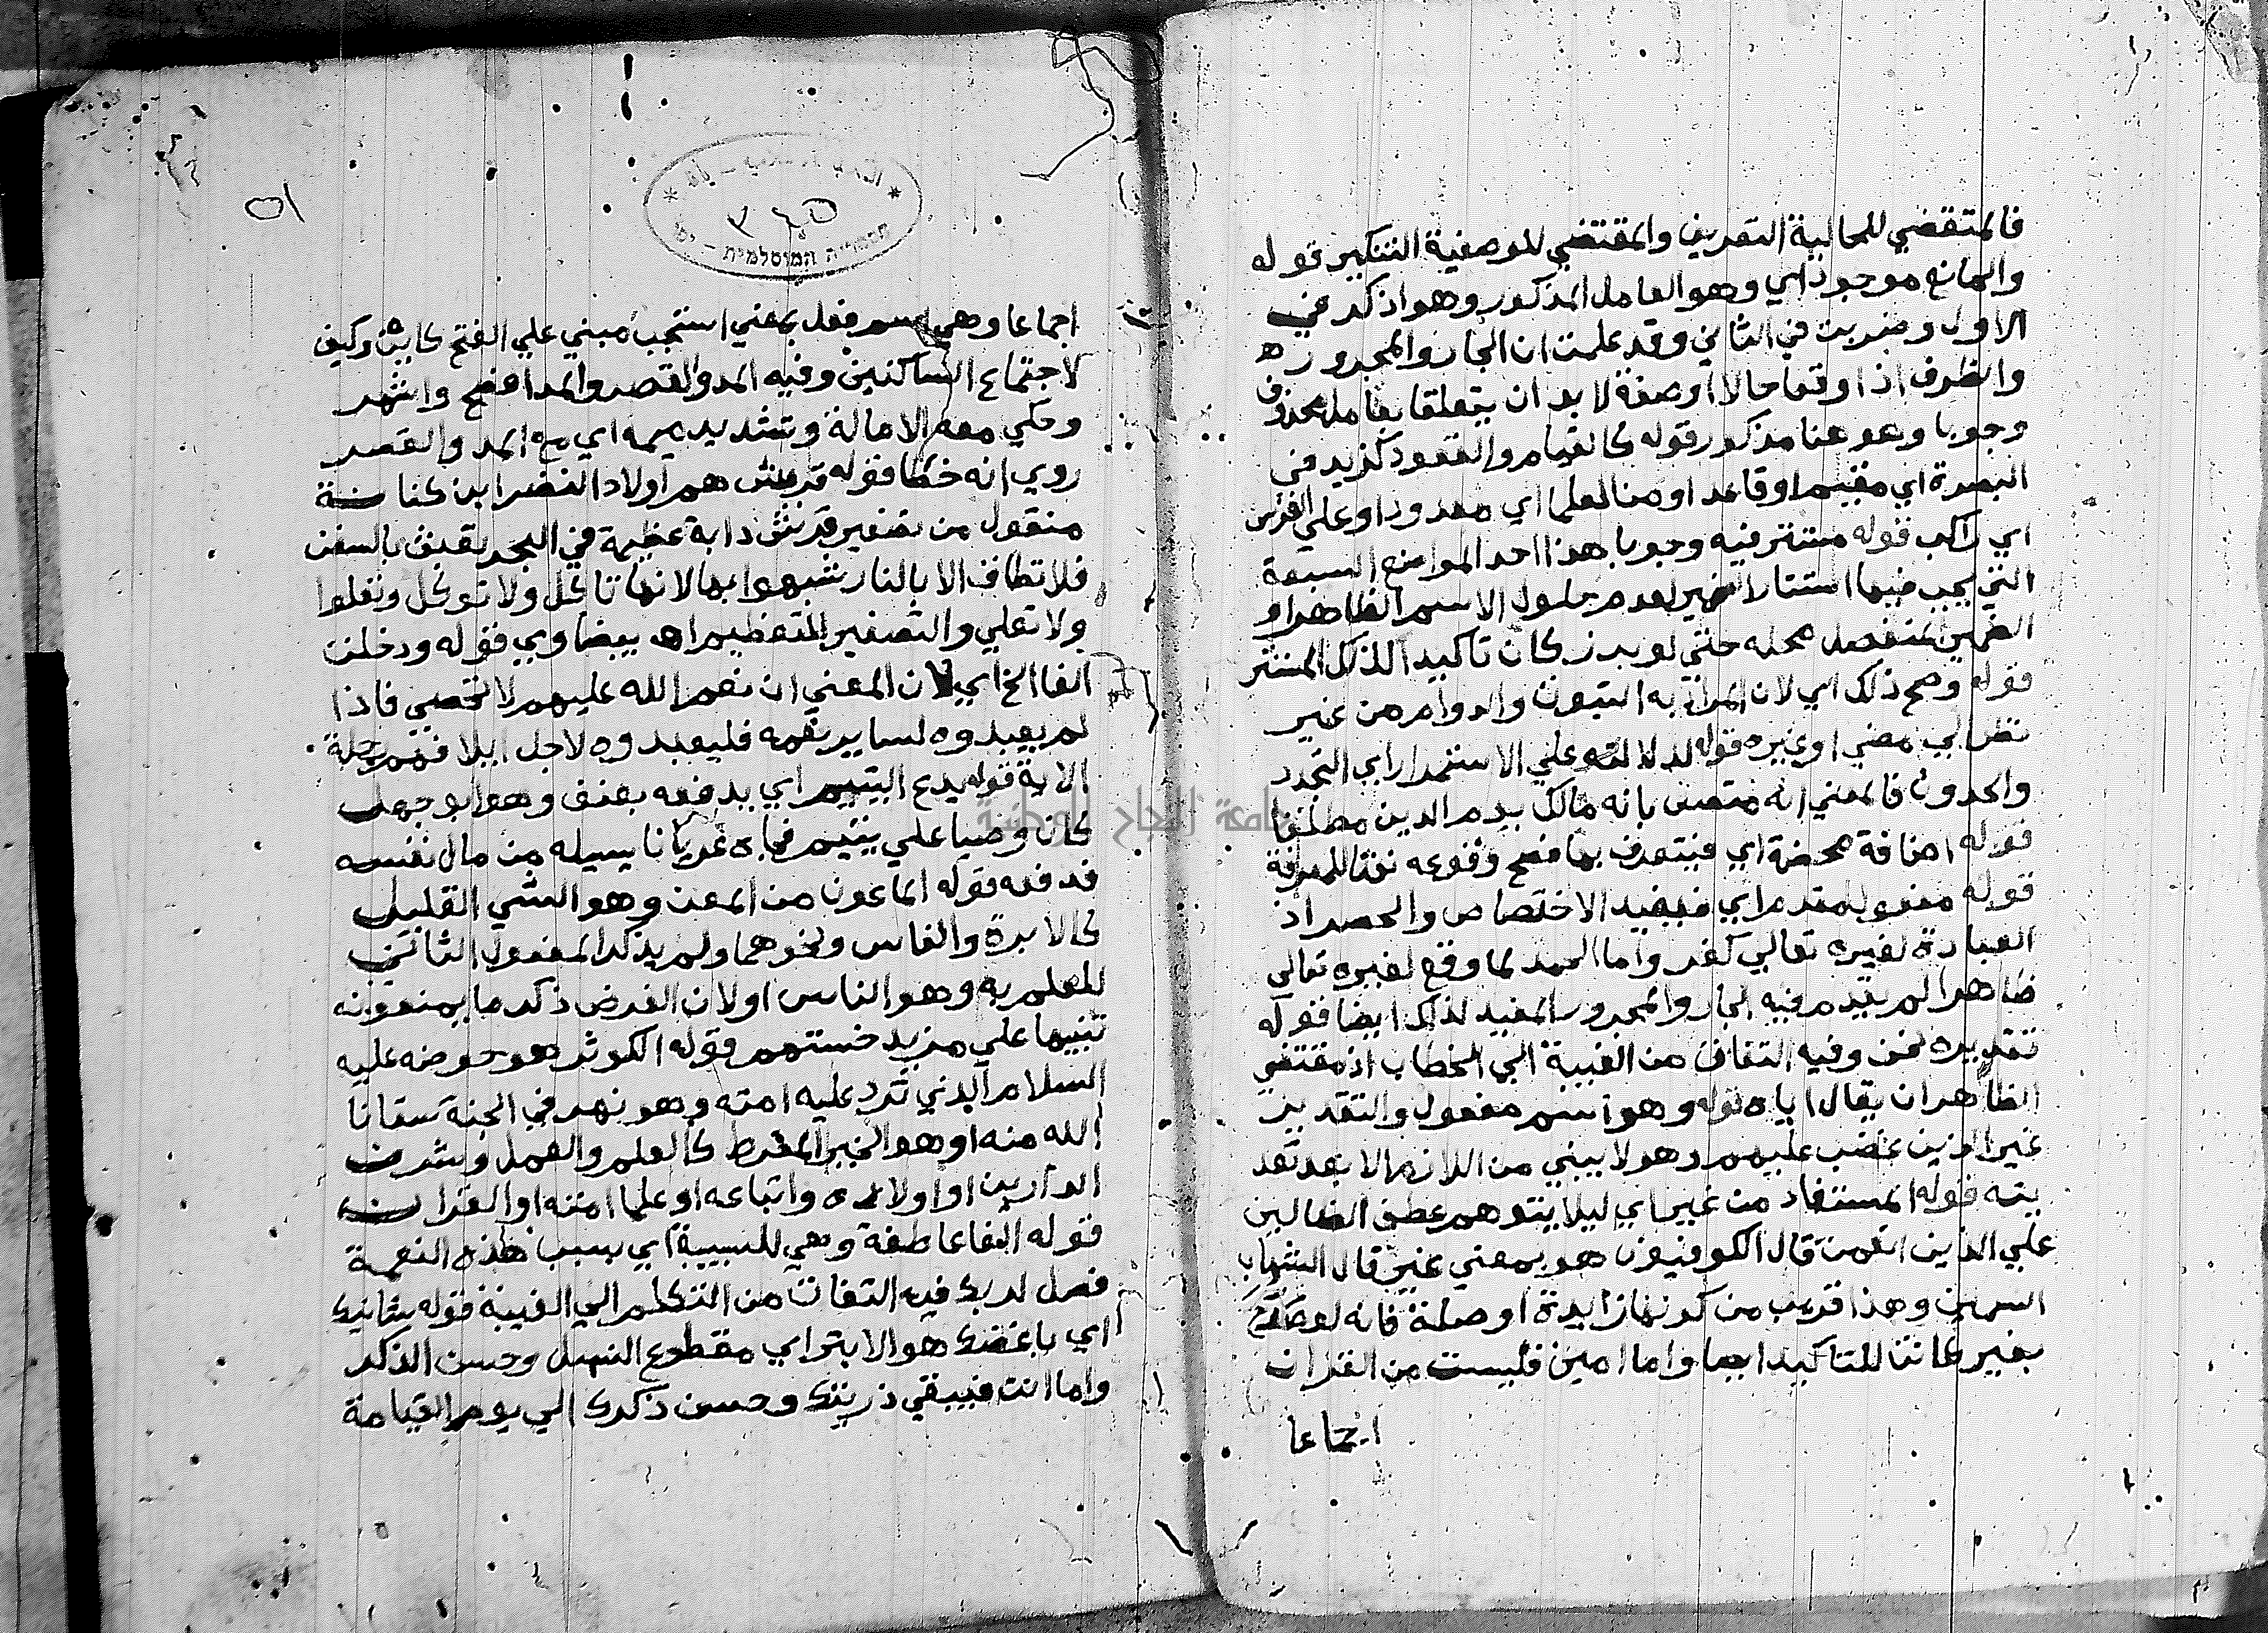 فالمتقضي للحالية التعريف والمقتضي للوصفية التنكير قوله
والمانع موجود اي وهو العامل المذكور وهو اذكر في
الاول وضربت في الثاني وقد علمت ان الجار والمجرور
والظرف اذا وقعا حالا اوصفة لا بد ان يتعلقا بعامل محذوف
وجوبا وهو هنا مذكور قوله كالقيام والقعود كزيد في
البصرة اي مقيم اوقاعد او من العلما اي معدود او علي الفرس
اي راكب قوله مستتر فيه وجوبا هذا احد المواضع السبعة
التي يجب فيها استتار الضمير لعدم حلول الاسم الظاهر او
الضمير المنفصل محله حتي لو برز كان تاكيدا لذلك المستتر
قوله وصح ذلك اي لان المراد به الثبوت والدوام من غير
نظر الي مضي اوغيره قوله لدلالته علي الاستمرار اي التجدد
والحدوث فالمعني انه متصف بانه مالك يوم الدين مطلقا
قوله اضافة محضة اي فيتعرف بها فصح وقوعه نعتا للمعرفة
قوله مفعول مقدم اي فيفيد الاختصاص والحصر اذ
العبادة لغيره تعالي كفر واما الحمد لما وقع لغيره تعالي
ظاهرا لم يقدم فيه الجار والمجرور المفيد لذلك ايضا قوله
تقديره نحن وفيه التفات من الغيبة الي الخطاب اذ مقتضي
الظاهر ان يقال اياه قوله وهو اسم مفعول والتقدير
غير الذين غضب عليهم وهو لا يبني من اللازم الا بعد تعد
يته قوله المستفاد من غير اي ليلا يتوهم عطف الضالين
علي الذين انعمت قال الكوفيون هو بمعني غير قال الشهاب
السمين وهذا قريب من كونها زايدة او صلة فانه لو صرح
بغير كانت للتاكيد ايضا واما امين فليست من القران
اجماعا
٥١
٣٤٥
اجماعا وهي اسم فعل بمعني استجب مبني علي الفتح كاين وكيف
لاجتماع الساكنين وفيه المد والقصر والمد افصح واشهر
وحكي معه الامالة وتشديد ميمه اي مع المد والقصر
روي انه خطا قوله قريش هم اولاد النضر ابن كنانة
منقول من تصغير قرش دابة عظيمة في البحر تعبث بالسفن
فلا تطاق الا بالنار شبهوا بها لانها تاكل ولا توكل وتعلوا
ولا تعلي والتصغير للتعظيم اه بيضاوي قوله ودخلت
الفا الخ اي لان المعني ان نعم الله عليهم لا تحصي فاذا
لم يعبدوه لساير نعمه فليعبدوه لاجل ايلافهم رحلة
الاية قوله يدع اليتيم اي يدفعه بعنف وهو ابو جهل
كان وصيا علي يتيم فجاه عريانا يسيله من مال نفسه
فدفعه قوله الماعون من المعن وهو الشي القليل
كالابرة والفاس ونحوهما ولم يذكر المفعول الثاني
للعلم به وهو الناس اولان الغرض ذكر ما يمنعونه
تنبيها علي مزيد خستهم قوله الكوثر هو حوضه عليه
السلام الذي ترد عليه امته وهو نهر في الجنة سقانا
الله منه او هو الخير المفرط كالعلم والعمل وشرف
الدارين او اولاده واتباعه او علما امته او القران
قوله الفا عاطفة وهي للسببية اي بسبب هذه النعمة
فصل لربك فيه التفات من التكلم الي الغيبة قوله شانيك
اي باغضك هو الابتر اي مقطوع النسل وحسن الذكر
واما انت فيبقي ذريتك وحسن ذكرك الي يوم القيامة
جامعة النجاح الوطنية